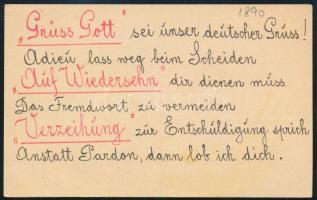 1890
„Grüss Gott" sei unser deutscher Gruss!
Adieu lass weg beim Scheiden
„Auf Wiedersehn" dir dienen muss
Das Fremdwort zu vermeiden
„Verzeihung" zur Entschüldigung sprich
Anstatt Pardon, dann lob ich dich.